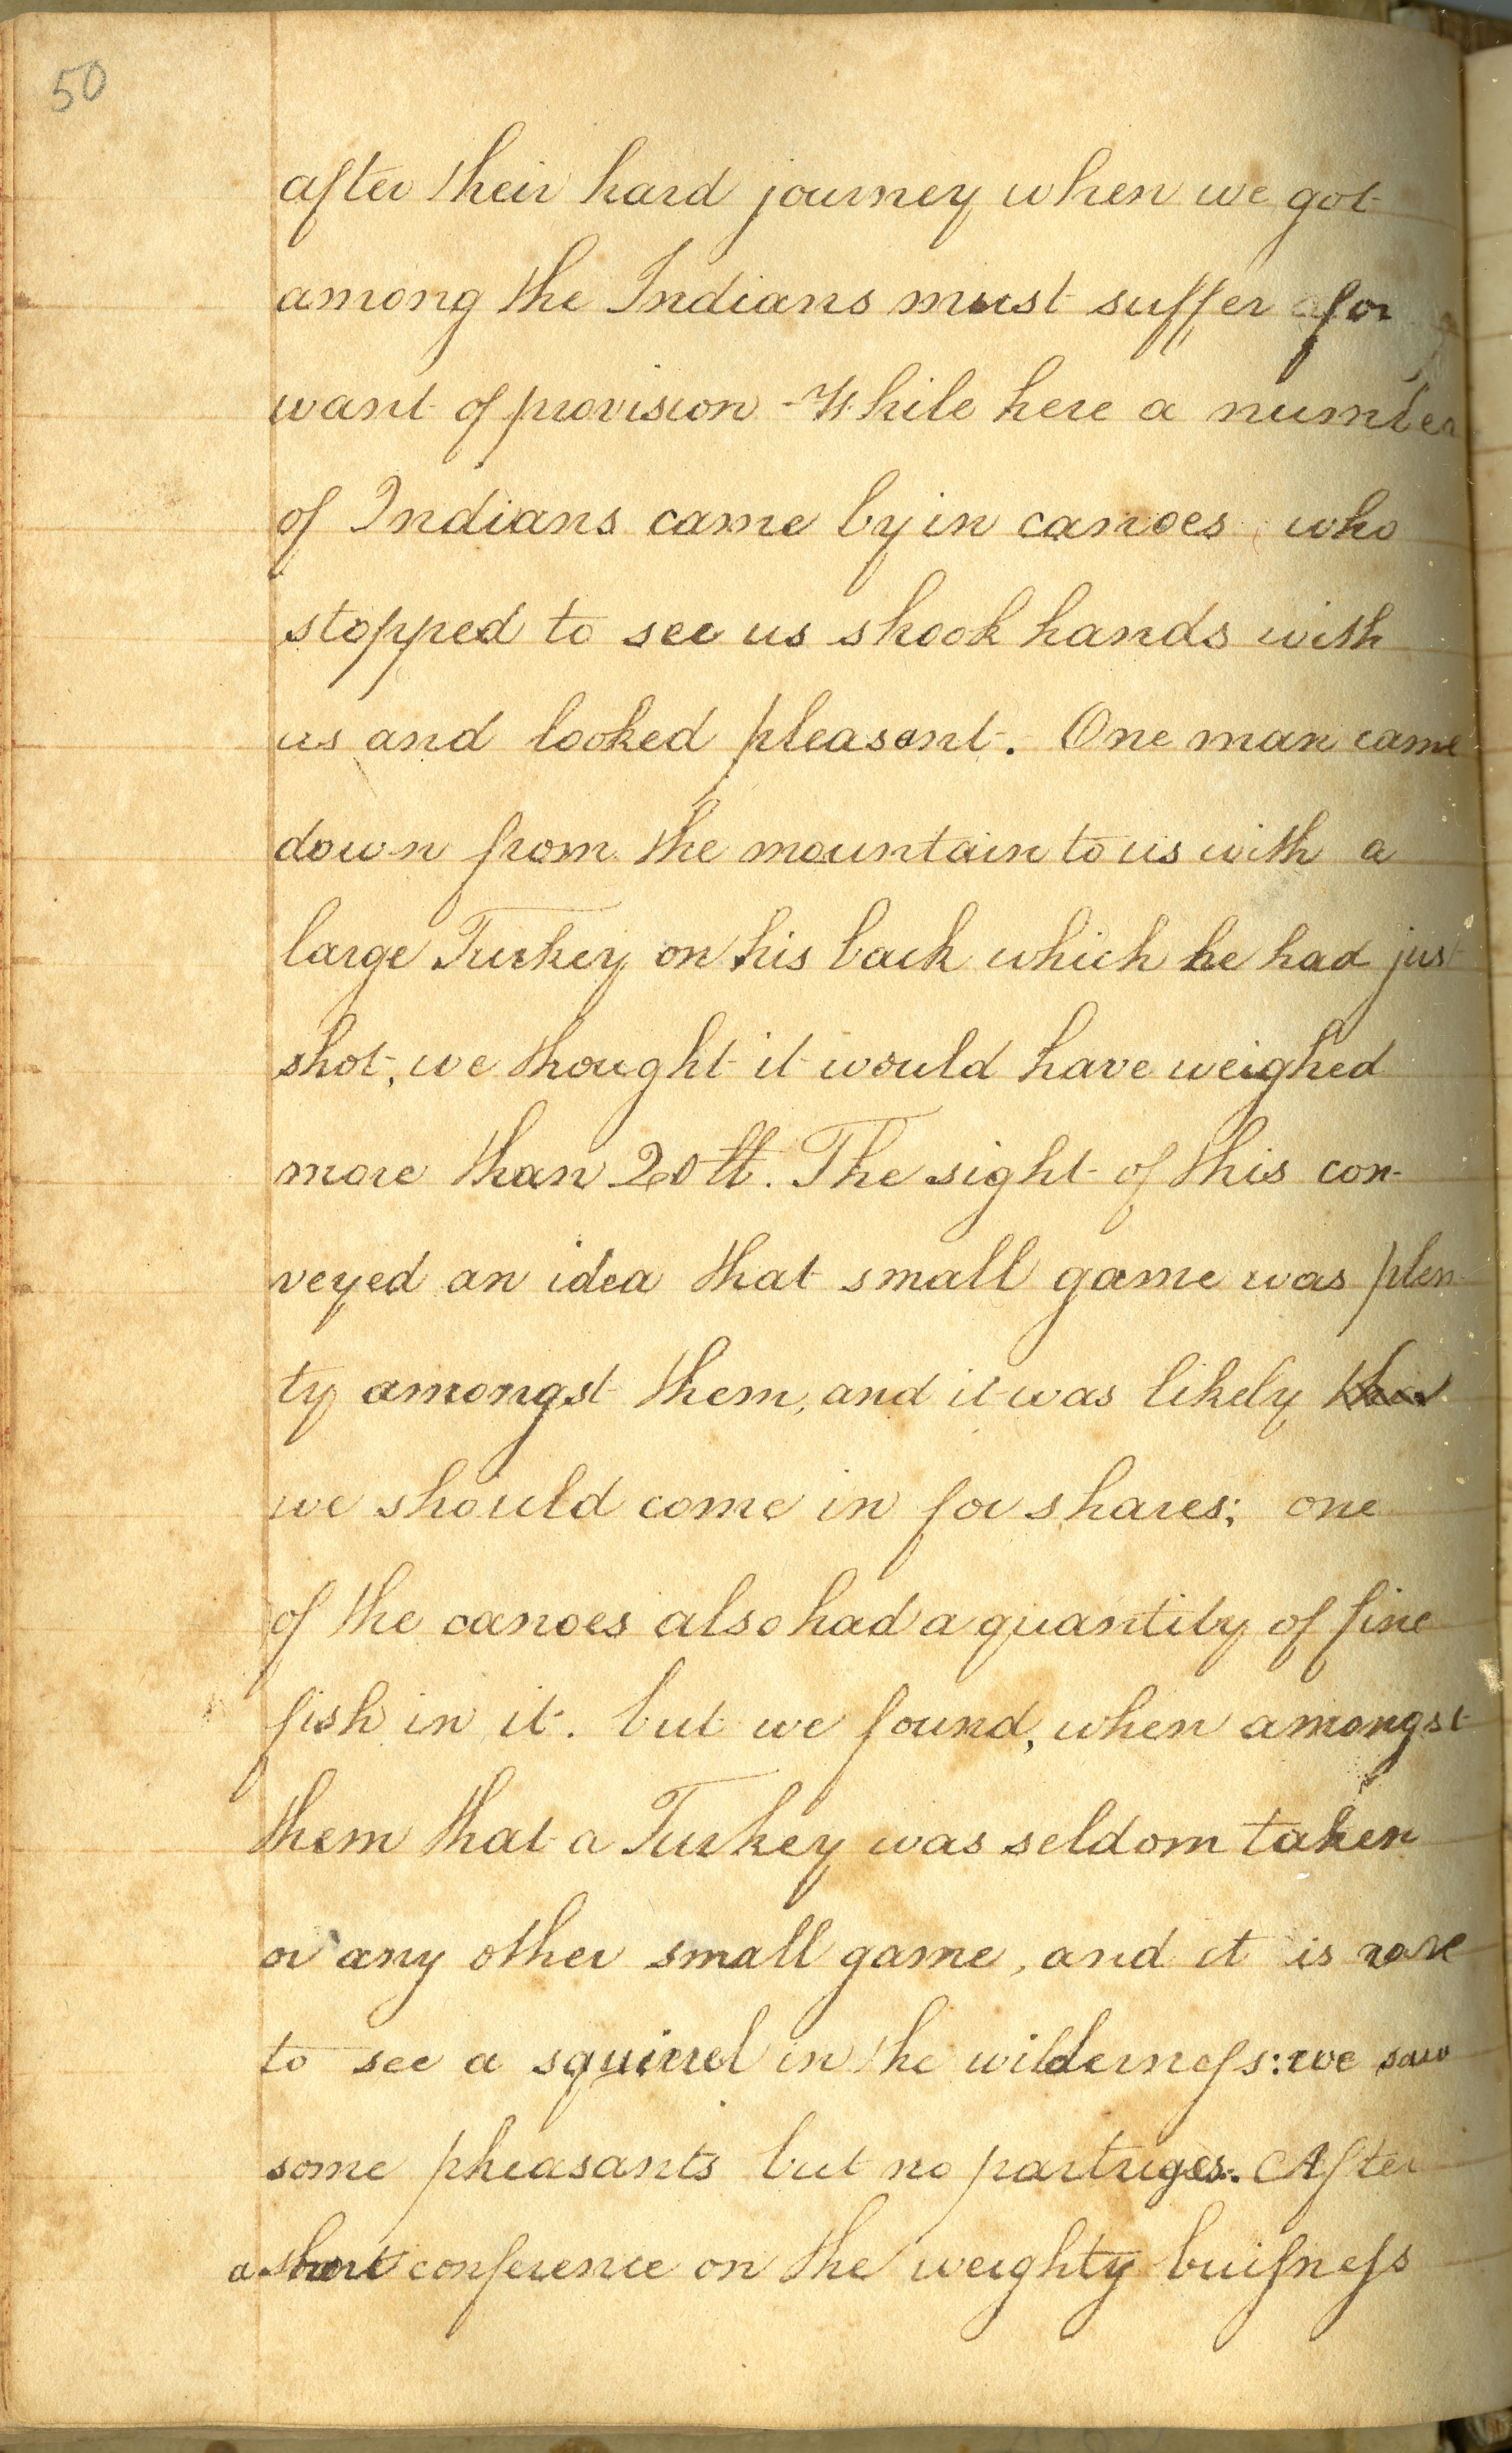 50
after their hard journey when we got
among the Indians must suffer for
want of provision - While here a number
of Indians came by in canoes who
stopped to see us shook hands with
us and looked pleasant. One man came
down from the mountain to us with a
large Turkey on his back which he had just
shot, we thought it would have weighed
more than 20 lb. The sight of this con-
veyed an idea that small game was plen
ty amongst them, and it was likely
we should come in for shares; one
of the canoes also had a quantity of fine
fish in it. but we found, when amongst
them that a Turkey was seldom taken
or any other small game, and it is rare
to see a squirrel in the wilderneſs: we saw
some pheasants but no partriges. After
a short conference on the weighty buiſneſs